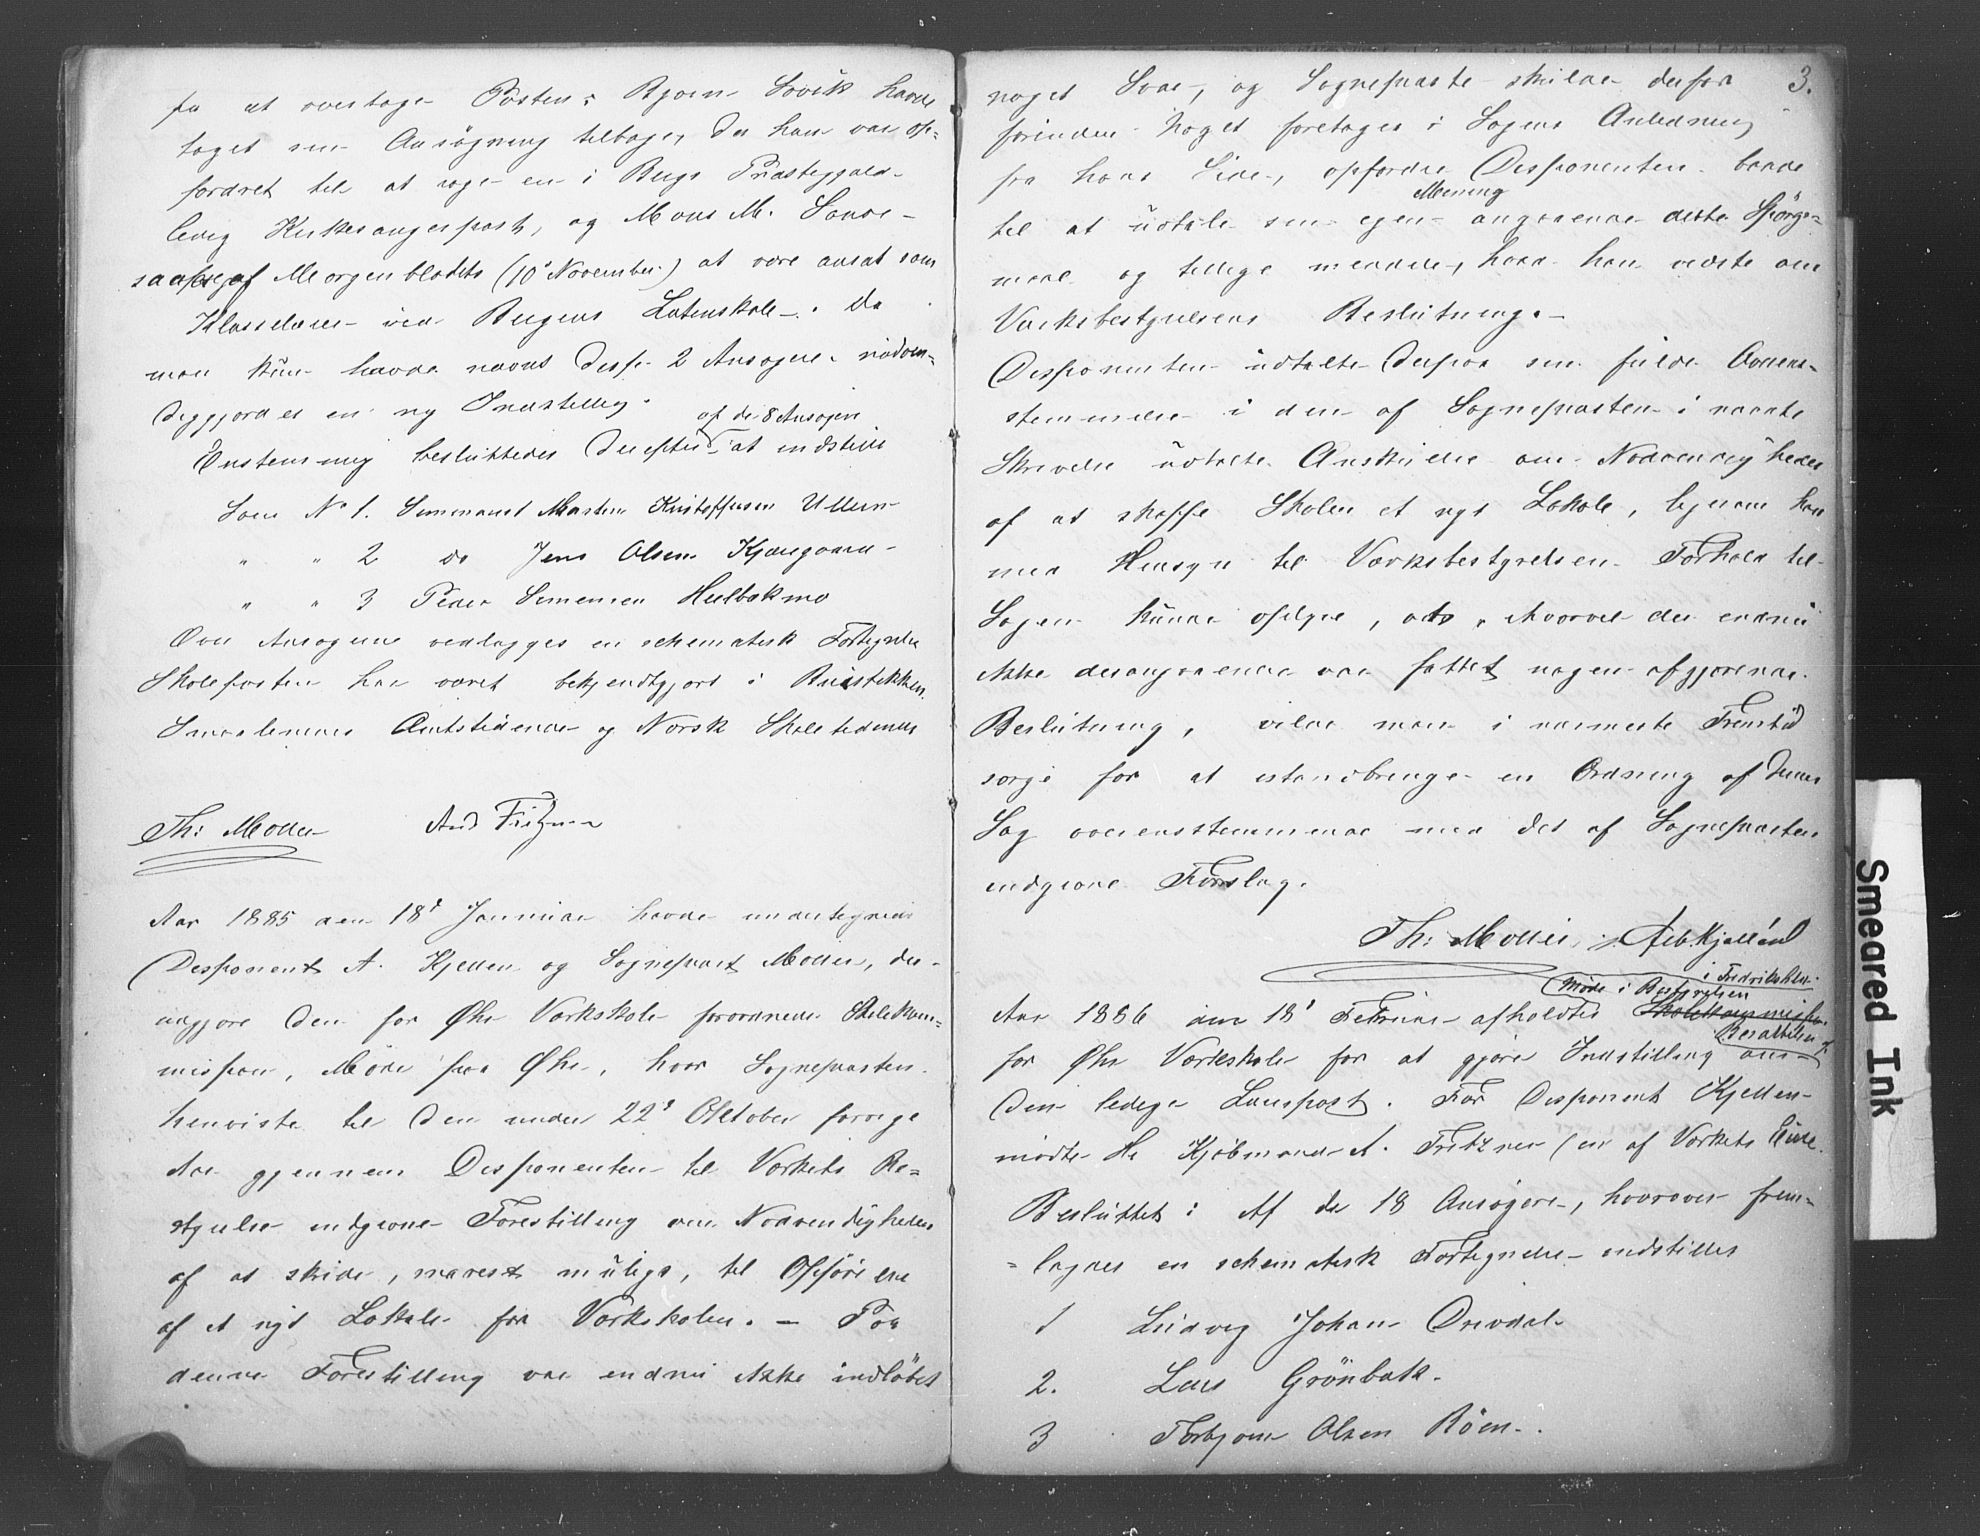 fra at overtage Posten. Bjørn Sovik havde
taget sin Ansøgning tilbage, da han var op-
fordret til at søge en i Bugs Præstegjeld
ledig Kirkesangerpost, og Mons M. Sonse
saaes af Morgenbladets (10de November) at være ansat som
Klasselærer ved Bergens Latinskole. Da
man kun havde nævnt disse 2 Ansøgere nødven-
diggjordes en ny Indstilling.
af de 8 Ansøgere
Enstemmig besluttedes derefter at indstille
Som No 1. Seminarist Martin Kristoffersen Ullern
" " 2 do Jens Olsen Kjærgaard
" " 3 Peder Simensen Hulbakmo
Over Ansøgerne vedlægges en schematisk Fortegnelse
Skoleposten har været bekjendtgjort i Budstikken,
Smaalenenes Amtstidende og Norsk Skoletidende
Th: Møller And Fritzner
Aar 1885 den 18de Januar havde undertegnede
Disponent A. Kjellén og Sogneprest Møller, der
udgjøre den for Øhr Værkskole forordnede Skolekom-
mission, Møde paa Øhr, hvor Sognepresten
henviste til den under 22de Oktober forrige
Aar gjennem Disponenten til Værkets Be-
styrelse indgivne Forestilling om Nødvendigheden
af at skride, snarest muligt, til Opførelse
af et nyt Lokale for Værkskolen. — Paa
denne Forestilling var endnu ikke indløbet
3.
noget Svar, og Sognepresten skulde derfor
forinden Noget foretages i Sagens Anledning
fra hans Side, opfordre Disponenten baade
Mening
til at udtale sin egen angaaende dette Spørgs-
maal og tillige meddele, hvad han vidste om
Værksbestyrelsens Beslutning. —
Disponenten udtalte derpaa sin fulde Overens-
stemmelse i den af Sognepresten i nævnte
Skrivelse udtalte Anskuelse om Nødvendigheden
af at skaffe Skolen et nyt Lokale, ligesom han
med Hensyn til Værksbestyrelsen Forhold til
Sagen kunde oplyse, at, hvorvel der endnu
ikke desangaaende var fattet nogen afgjørende
Beslutning, vilde man i nærmeste Fremtid
sørge for at istandbringe en Ordning af denne
Sag overensstemmende med det af Sognepresten
indgivne Forslag.
Th: Møller Alb Kjellénd
i Fredrikshald
Møde i Bestyrelsen
Aar 1886 den 18de Februar afholdtes Skolekommission
Besættelsen af
for Øhr Værkskole for at gjøre Indstilling om
den ledige Lærerpost. For Disponent Kjellén
mødte Hr Kjøbmand A. Fritzner (en af Værkets Eiere.
Besluttet: Af de 18 Ansøgere, hvorover frem-
lagdes en schematisk Fortegnelse indstilles
1 Ludvig Johan Drevdal
2. Lars Grönbæk.
3 Torbjørn Olsen Röen.
Smeared Ink